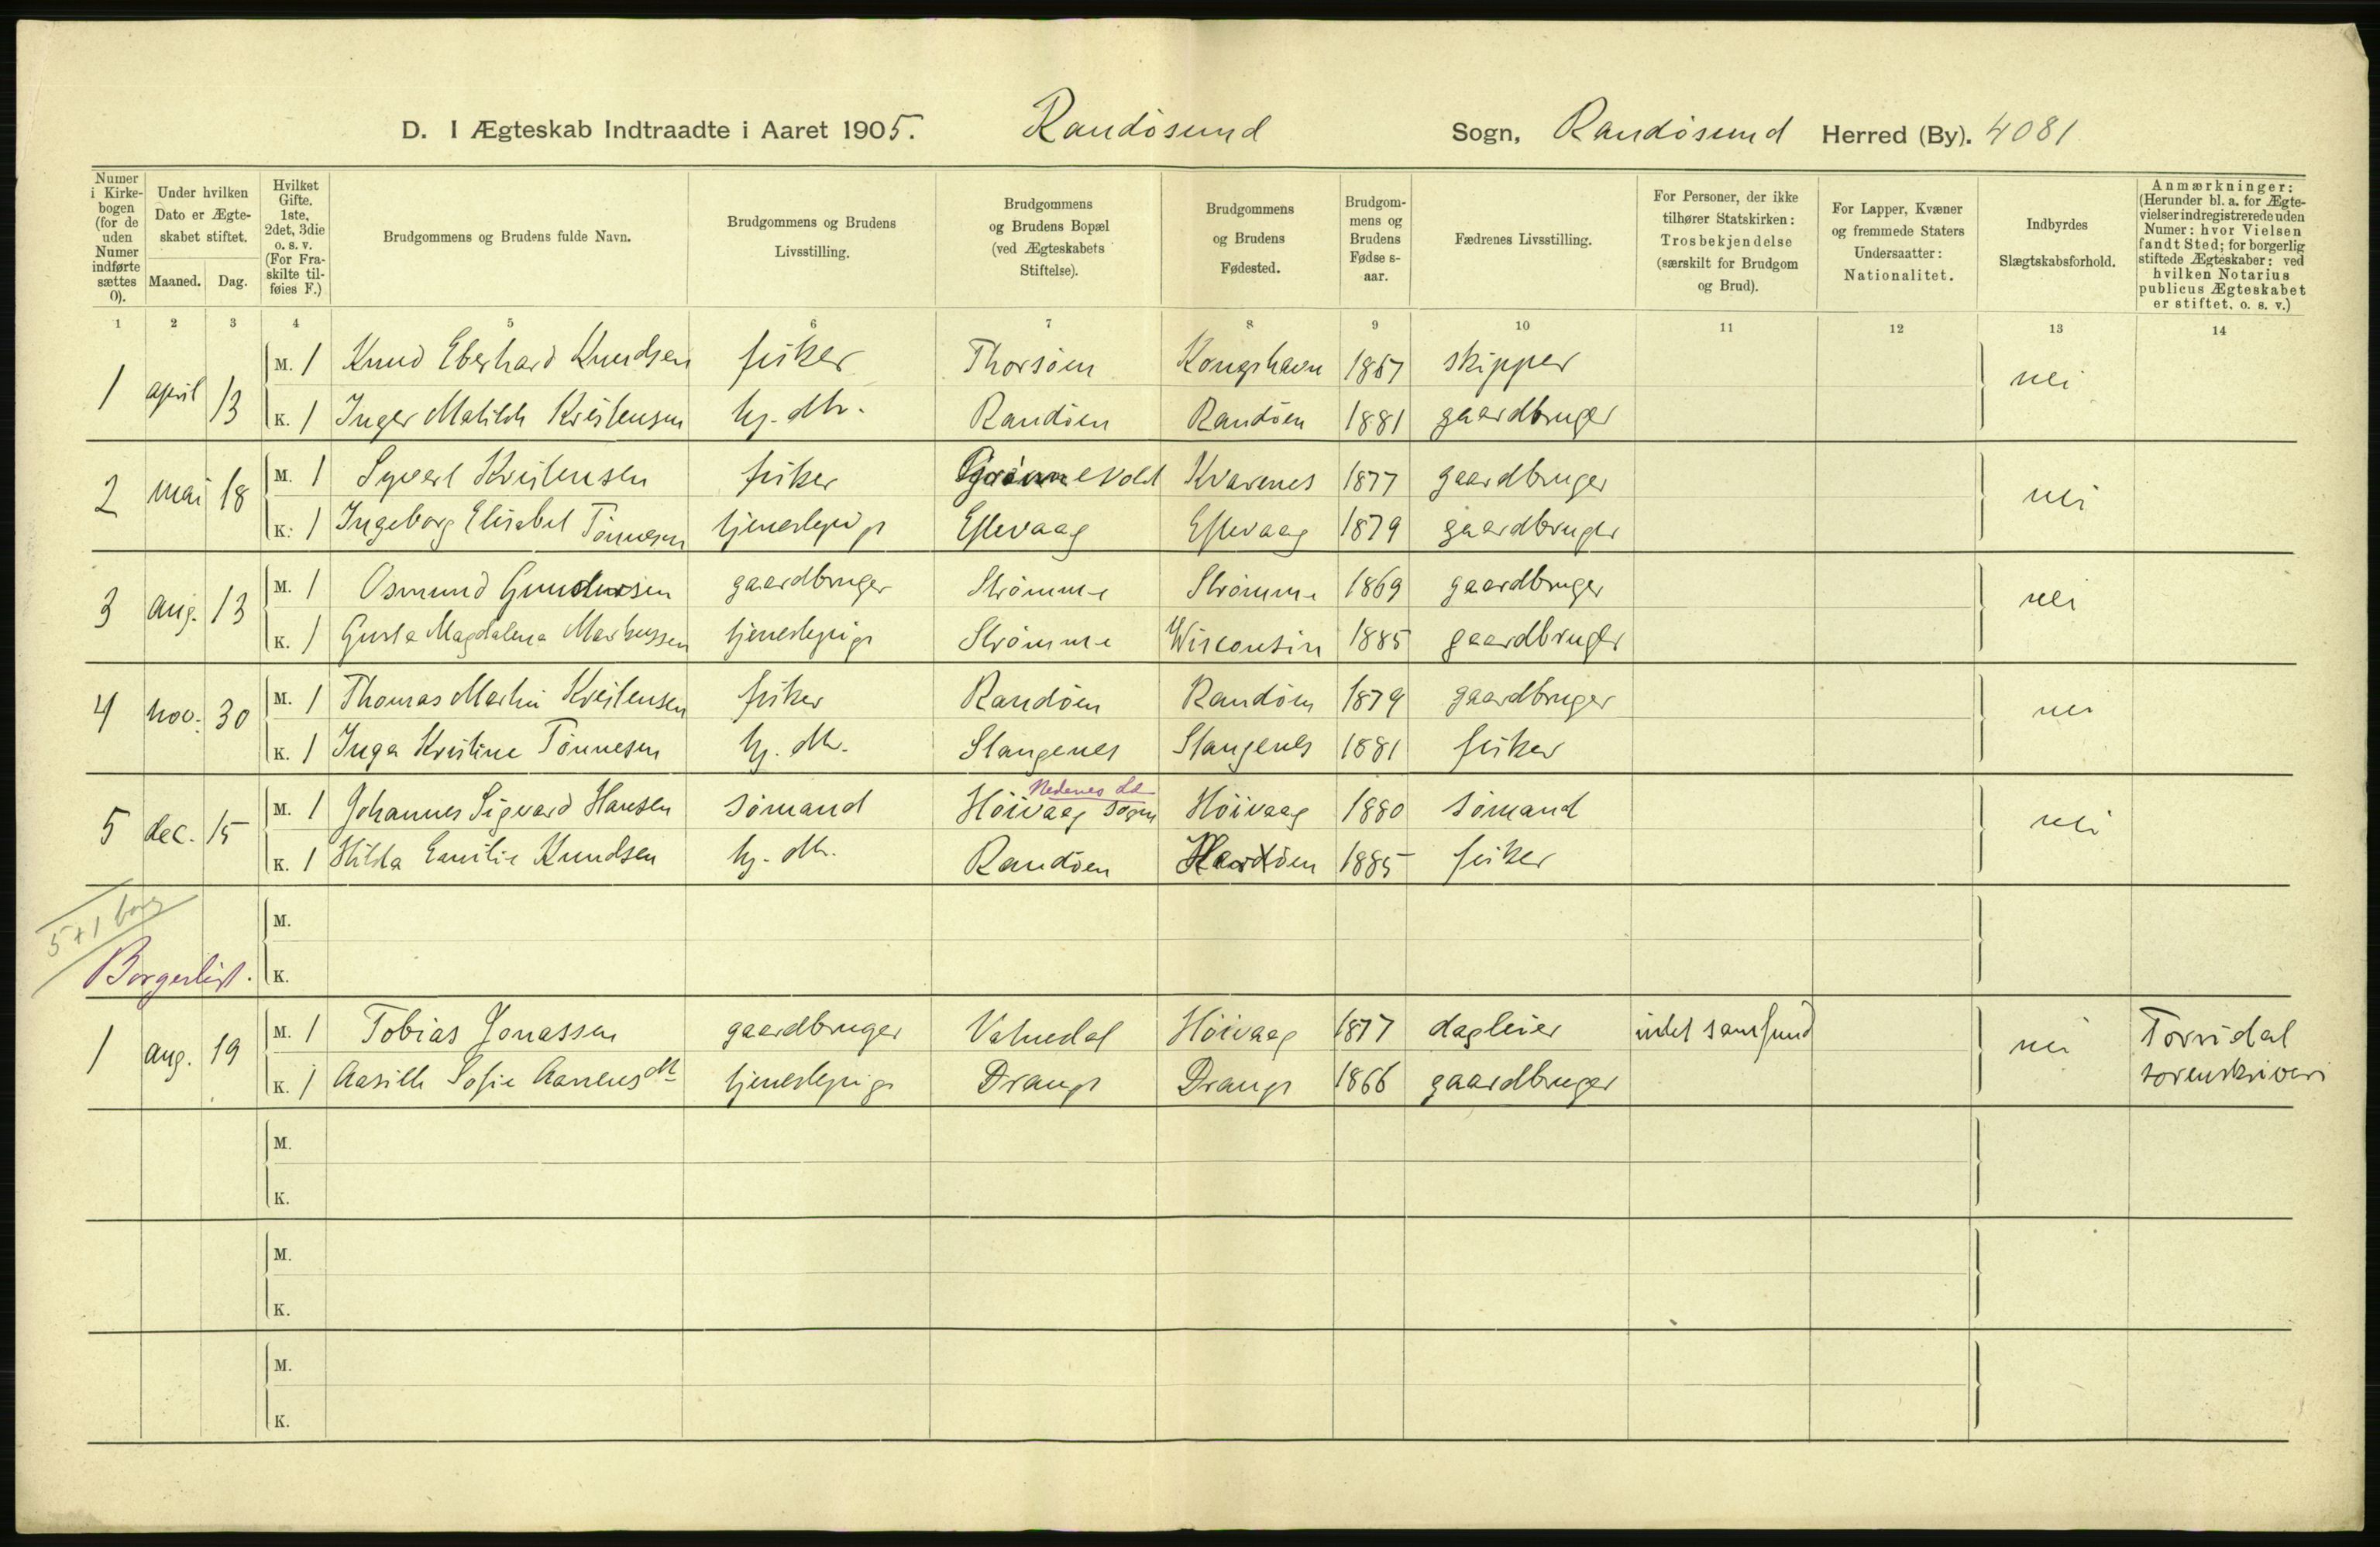 D. I Ægteskab Indtraadte i Aaret 1905. Randøsund Sogn, Randøsund Herred (By). 4081
Numer i Kirke-bogen (for de uden Numer indførte sættes 0).
Under hvilken Dato er Ægte-skabet stiftet.
Maaned. Dag.
Hvilket Gifte. 1ste, 2det, 3die o. s. v. (For Fra-skilte til-føies F.)
Brudgommens og Brudens fulde Navn.
Brudgommens og Brudens Livsstilling.
Brudgommens og Brudens Bopæl (ved Ægteskabets Stiftelse).
Brudgommens og Brudens Fødested.
Brudgom-mens og Brudens Fødse s-aar.
Fædrenes Livsstilling.
For Personer, der ikke tilhører Statskirken: Trosbekjendelse (særskilt for Brudgom og Brud).
For Lapper, Kvæner og fremmede Staters Undersaatter: Nationalitet.
Indbyrdes Slægtskabsforhold.
Anmærkninger: (Herunder bl. a. for Ægte-vielser indregistrerede uden Numer: hvor Vielsen fandt Sted; for borgerlig stiftede Ægteskaber: ved hvilken Notarius publicus Ægteskabet er stiftet. o. s. v.)
1 2 3 4 5 6 7 8 9 10 11 12 13 14
1 april 13 M. 1 Knud Eberhard Knudsen fisker Thorsøen Kongshavn 1867 skipper nei
K. 1 Inger Mathilde Kristensen hj. dtr. Randøen Randøen 1881 gaardbruger
2 mai 18 M. 1 Syvert Kristensen fisker Grønnevold Kvarenes 1877 gaardbruger nei
K. 1 Ingeborg Elisabet Tønnesen tjenestepige Eftevaag Eftevaag 1879 gaardbruger
3 aug. 13 M. 1 Osmund Gundersen gaardbruger Strømme Strømme 1869 gaardbruger nei
K. 1 Gusta Magdalena Markussen tjenestepige Strømme Wisconsin 1885 gaardbruger
4 nov. 30 M. 1 Thomas Martin Kristensen fisker Randøen Randøen 1879 gaardbruger nei
K. 1 Inga Kristine Tønnesen hj. dtr. Stangenes Stangenes 1881 fisker
Nedenes
5 dec. 15 M. 1 Johannes Sigvard Hansen sømand Høivaag sogn Høivaag 1880 sømand nei
K. 1 Hilda Emilie Knudsen hj. dtr. Randøen 1885 fisker
5+1 borg
M.
Borgerligt. K.
1 aug. 19 M. 1 Tobias Jonassen gaardbruger Vatnedal Høivaag 1877 dagleier intet samfund nei Torridal
K. 1 Aasille Sofie Aanensdt tjenestepige Drange Drange 1866 gaardbruger sorenskriveri
M.
K.
M.
K.
M.
K.